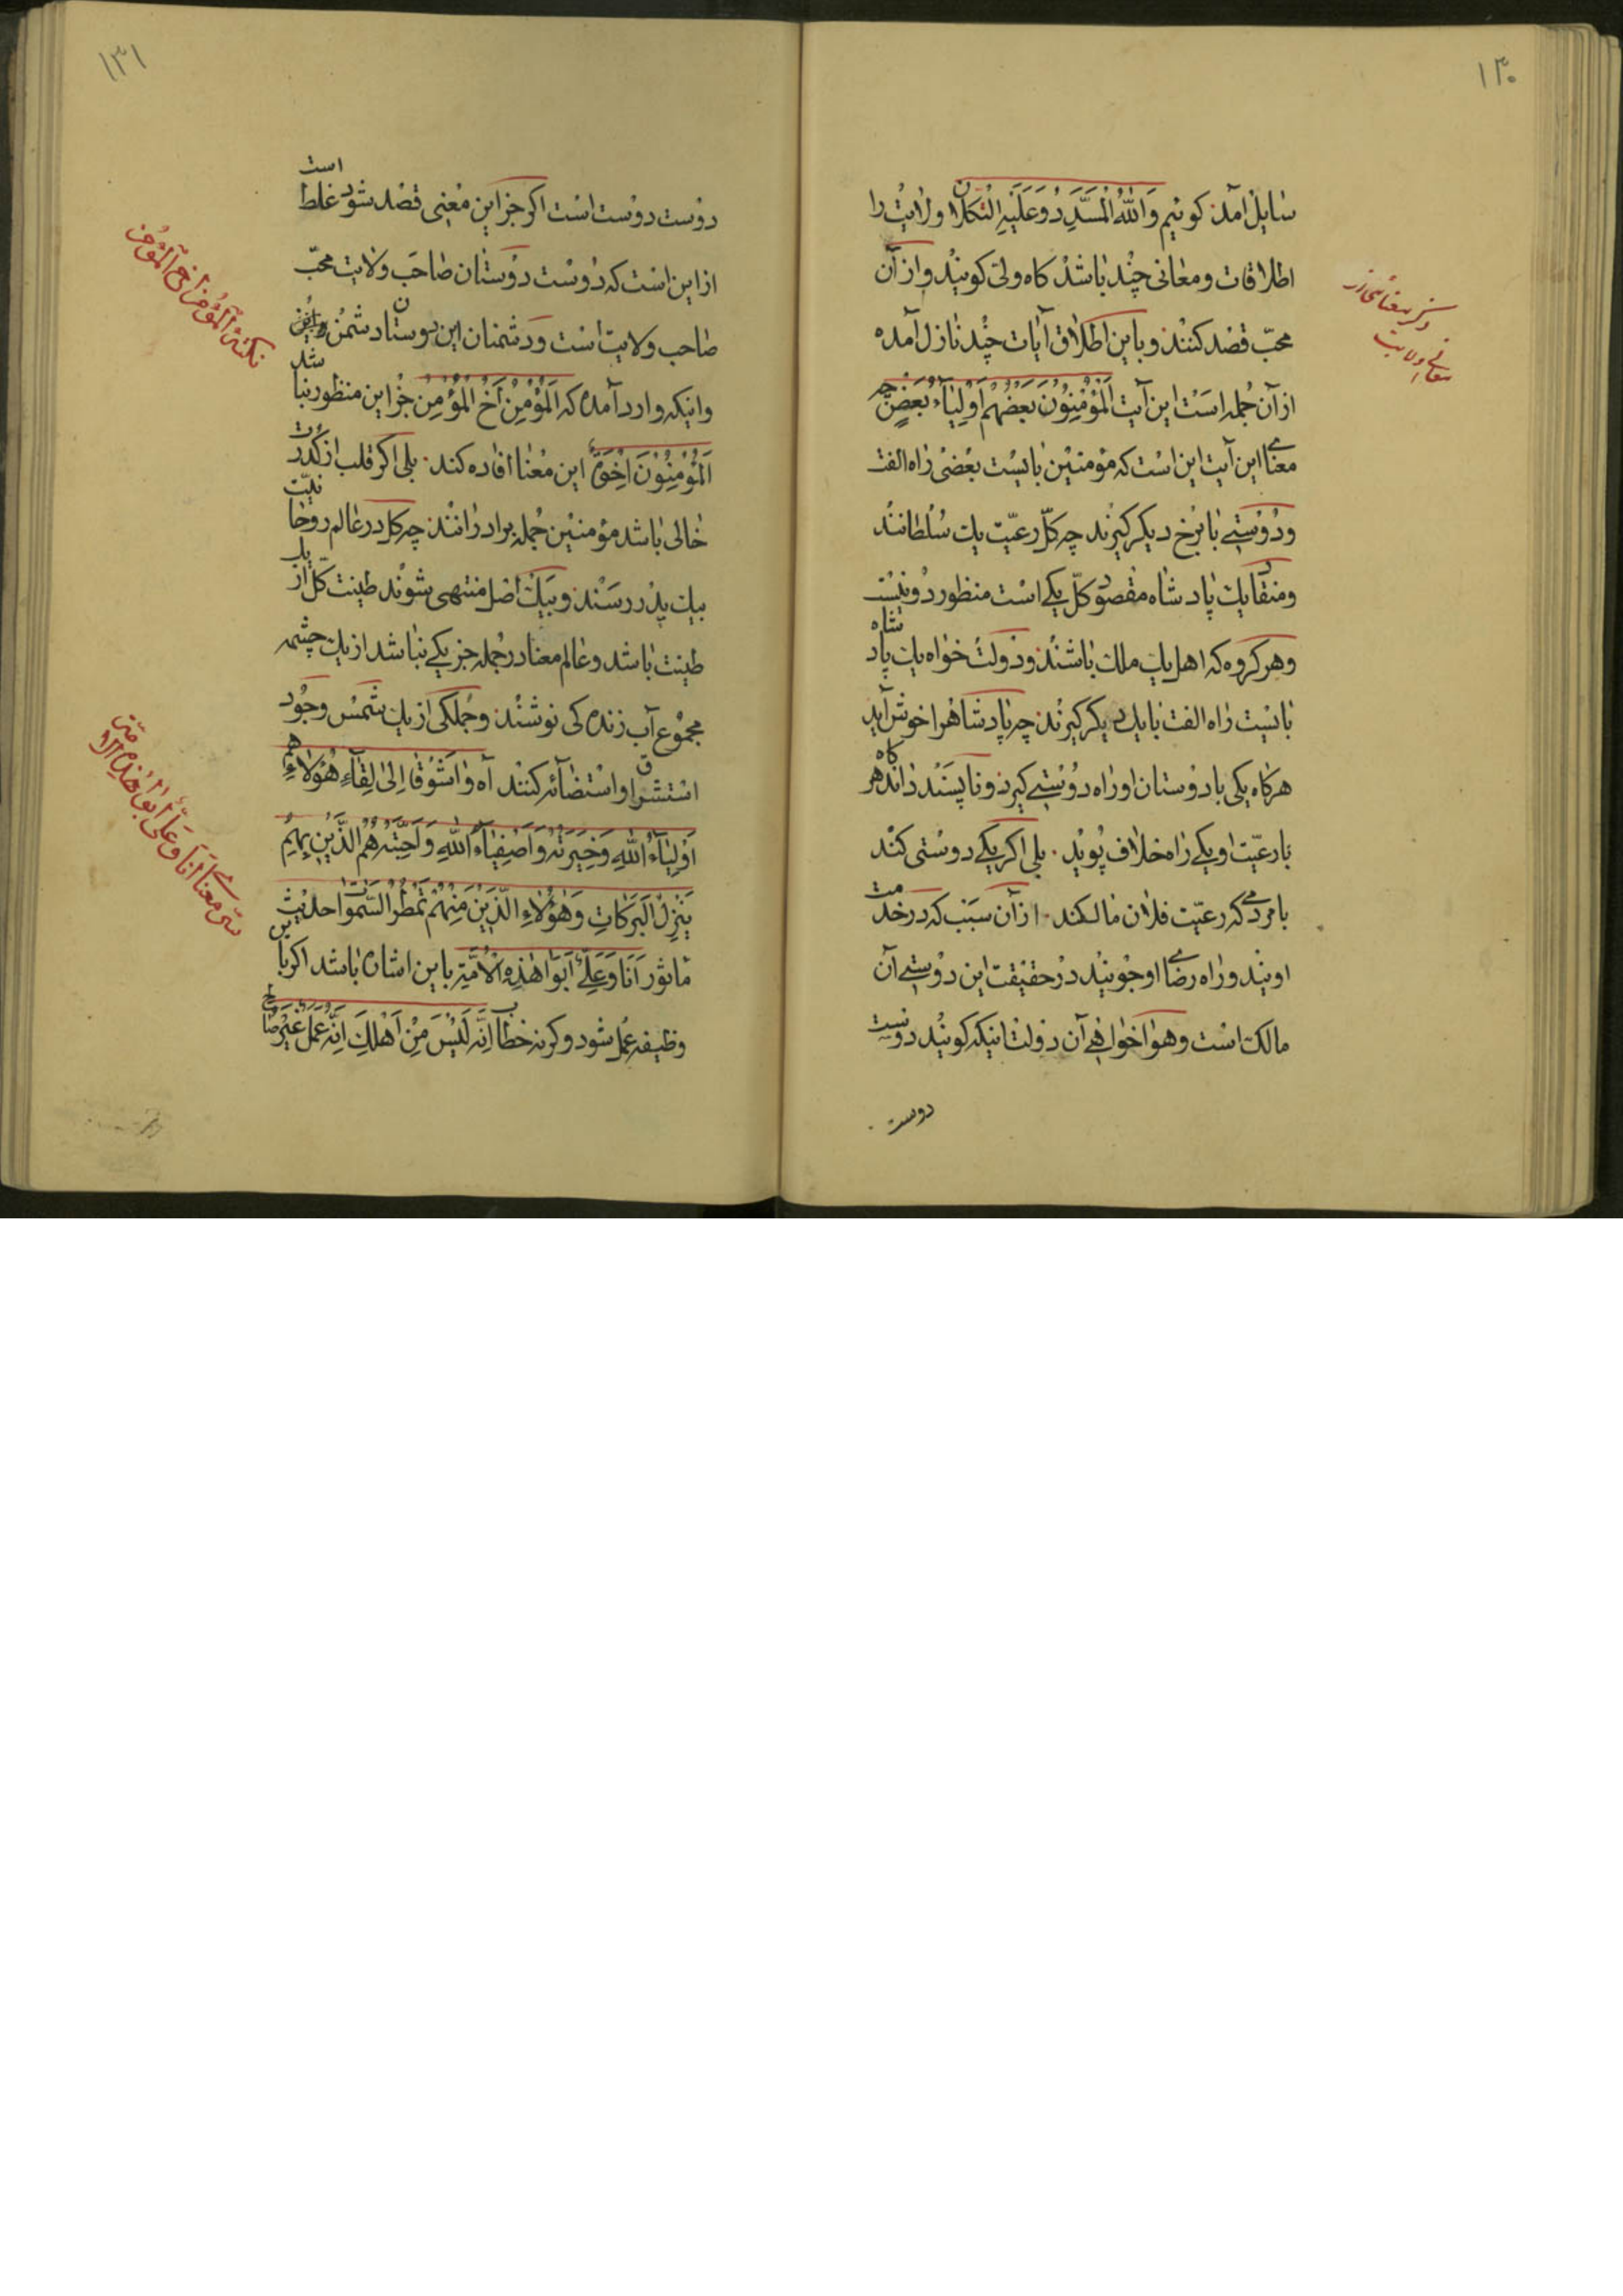 ۱۳۰
سایل آمد کوئیم وَاللّٰهُ الْمُسَدِّدُ وَعَلَیْهِ التُّکلان ولایت را
اطلاقات ومعانی چند باشد کاه ولی کویند واز آن
محبّ قصد کنند وباین اطلاق آیات چند نازل آمده
از آن جمله است این آیت اَلْمُؤْمِنُونَ بَعضُهُمْ اَوْلِیَآءُ بَعْضٍ چه
معنای این آیت این است که مؤمنین بایست بعضی راه الفت
ودوستی با برخ دیکر کیرند چه کلّ رعیّت یک سُلطانند
ومنقاد یک پادشاه مقصود کلّ یکی است منظور دو نیست
وهر کروه که اهل یک ملک باشند ودولت خواه یک پادشاه
بایست راه الفت با یک دیکر کیرند چه پادشاه را خوش آید
هر کاه یکی با دوستان او راه دوستی کیرد وناپسند داند هر کاه
با رعیّت او یکی راه خلاف پوید . بلی اکر یکی دوستی کند
با مردمی که رعیّت فلان مالکند . از آن سبب که در خدمت
اویند وراه رضای او جویند در حقیقت این دوستی آن
مالک است وهوا خواهی آن دولت اینکه کویند دوست
دوست
ذکر بعضی از
معانی ولایت
۱۳۱
دوست دوست است اکر جز این معنی قصد شود غلط است
از این است که دوست دوستان صاحب ولایت محبّ
صاحب ولایت است ودشمنان این دوستان دشمن
واینکه وارد آمده که اَلْمُؤْمِنُ اَخُ الْمُؤْمِنُ جز این منظور نباشد
اَلْمُؤْمِنُونَ اِخْوَةٌ این معنا افاده کند . بلی اکر قلب از کدرت
خالی باشد مؤمنین جمله برادرانند چه کل در عالم روحانیّت
بیک پدر رسند وبیک اصل منتهی شوند طینت کلّ از یک
طینت باشد وعالم معنا در جمله جز یکی نباشد از یک چشمه
مجموع آب زنده کی نوشند وجملکی از یک شمس وجود
استشراق واستضائه کنند آه وَاشَوْقَا اِلیٰ لِقَآءِ هٰؤُلآءِ هم
اَوْلِیَآءُ اللّٰهِ وَخِیَرَتُهُ وَاَصْفِیَآءُ اللّٰهِ وَاَحِبَّتُهُ هُمُ الَّذِیْنَ بِهِمْ
یَنْزِلُ الْبَرَکَاتِ وَهٰؤُلآءِ الَّذِیْنَ مِنْهُمْ تَمْطُرُ السَّمٰوات حدیث
ماثور اَنَا وَعَلِیٌّ اَبَوَا هٰذِهِ الْاُمَّةِ باین اشاره باشد اکر باین
وظیفه عمل شود وکرنه خطاب اِنَّهُ لَیْسَ مِنْ اَهْلِکَ اِنَّهُ عَمَلٌ غَیْرُ صَالِح
نکتهٔ اَلْمُؤْمِنُ اَخُ الْمُؤْمِن
سرّ معنای اَنَا وَعَلِیٌّ اَبَوَا هٰذِهِ الْاُمَّة